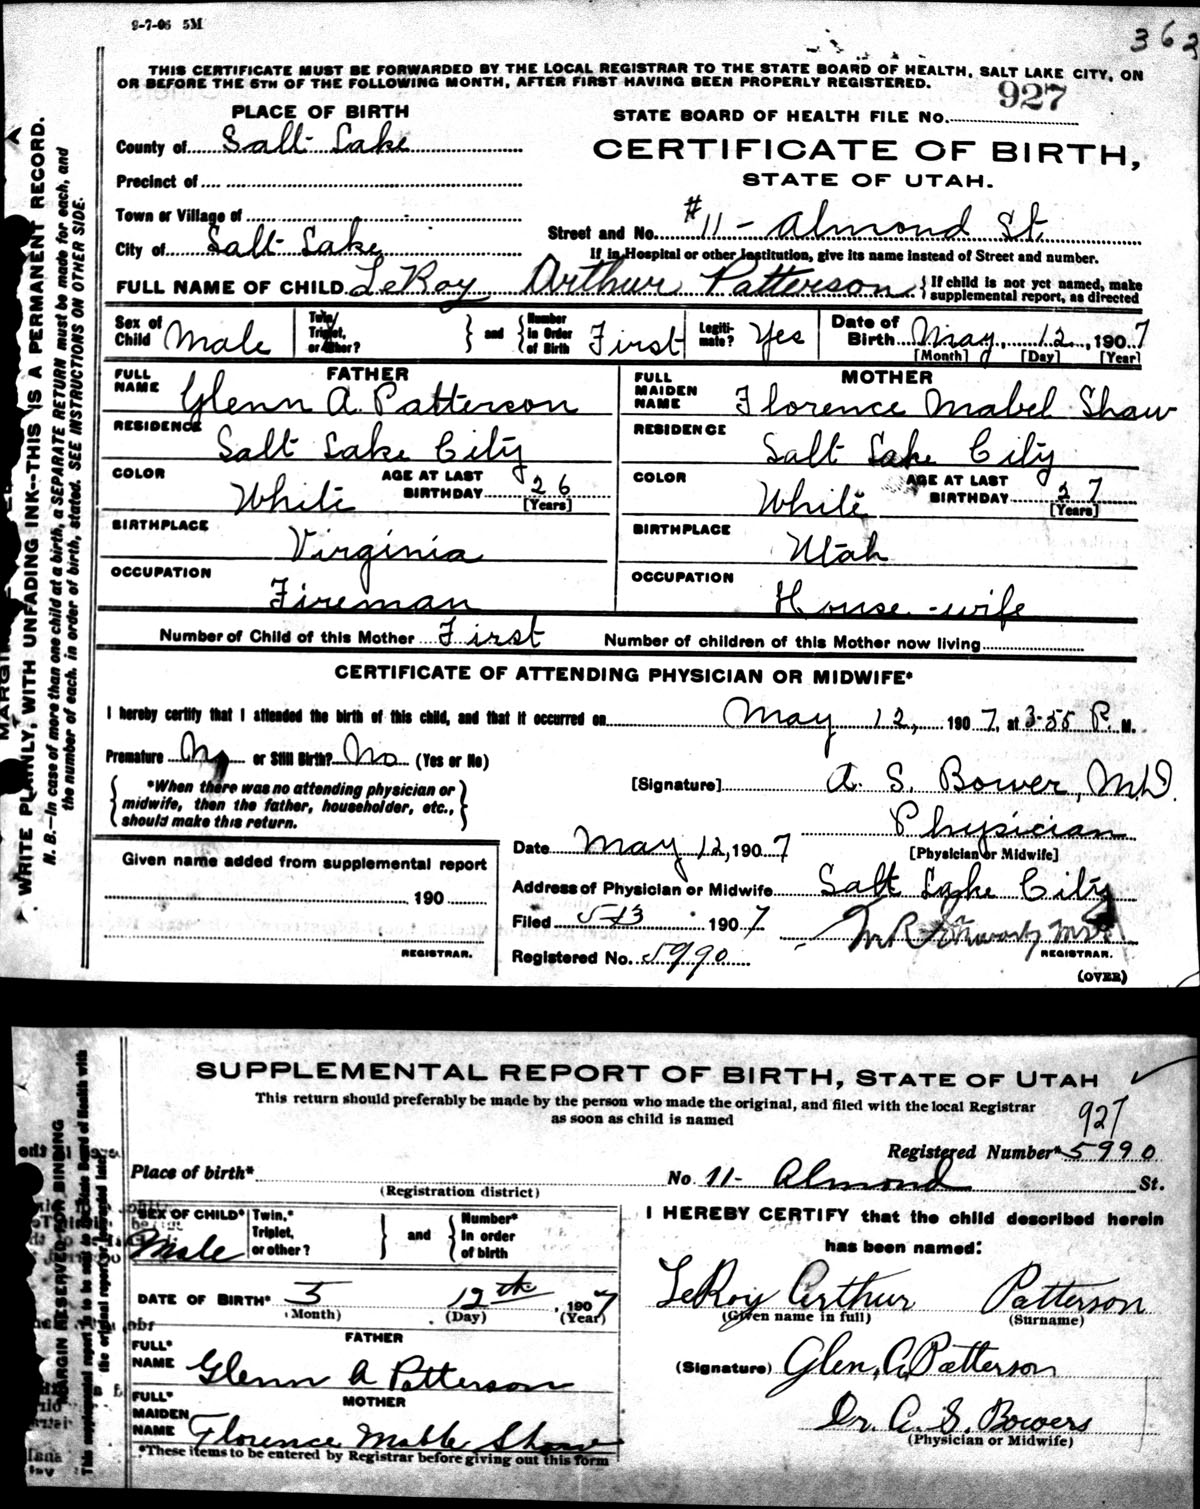 9-7-06 5M
363
THIS CERTIFICATE MUST BE FORWARDED BY THE LOCAL REGISTRAR TO THE STATE BOARD OF HEALTH, SALT LAKE CITY, ON
OR BEFORE THE 5TH OF THE FOLLOWING MONTH, AFTER FIRST HAVING BEEN PROPERLY REGISTERED.
PLACE OF BIRTH
STATE BOARD OF HEALTH FILE No. 927
County of Salt Lake
CERTIFICATE OF BIRTH,
Precinct of
STATE OF UTAH.
Town or Village of
Street and No. #11 - Almond St.
City of Salt Lake
If in Hospital or other Institution, give its name instead of Street and number.
FULL NAME OF CHILD LeRoy Arthur Patterson { If child is not yet named, make supplemental report, as directed
Sex of Child Male Twin, Triplet, or other? } and { Number in Order of Birth First Legiti- mate? Yes Date of Birth May, 12, 1907
[Month] [Day] [Year]
FATHER
FULL NAME Glenn A. Patterson
RESIDENCE Salt Lake City
COLOR White AGE AT LAST BIRTHDAY 26 [Years]
BIRTHPLACE Virginia
OCCUPATION Fireman
MOTHER
FULL MAIDEN NAME Florence Mabel Shaw
RESIDENCE Salt Lake City
COLOR White AGE AT LAST BIRTHDAY 27 [Years]
BIRTHPLACE Utah
OCCUPATION House-wife
Number of Child of this Mother First Number of children of this Mother now living
CERTIFICATE OF ATTENDING PHYSICIAN OR MIDWIFE*
I hereby certify that I attended the birth of this child, and that it occurred on May 12, 1907, at 3-55 P. M.
Premature No or Still Birth? No (Yes or No)
{ *When there was no attending physician or
midwife, then the father, householder, etc.,
should make this return. }
[Signature] A. S. Bower, M.D.
Physician
[Physician or Midwife]
Date May 12, 1907
Address of Physician or Midwife Salt Lake City
Filed 5-13 1907
REGISTRAR.
Registered No. 5990
(OVER)
Given name added from supplemental report
190
REGISTRAR.
WRITE PLAINLY, WITH UNFADING INK--THIS IS A PERMANENT RECORD.
N. B.—In case of more than one child at a birth, a SEPARATE RETURN must be made for each, and
the number of each, in order of birth, stated. SEE INSTRUCTIONS ON OTHER SIDE.
SUPPLEMENTAL REPORT OF BIRTH, STATE OF UTAH
This return should preferably be made by the person who made the original, and filed with the local Registrar
as soon as child is named
927
Registered Number* 5990
Place of birth*
(Registration district)
No. 11- Almond St.
SEX OF CHILD* Male Twin,* Triplet, or other? } and { Number* in order of birth
DATE OF BIRTH* 5 12th, 1907
(Month) (Day) (Year)
FATHER
FULL* NAME Glenn A Patterson
MOTHER
FULL* MAIDEN NAME Florence Mable Shaw
*These items to be entered by Registrar before giving out this form
I HEREBY CERTIFY that the child described herein
has been named:
LeRoy Arthur Patterson
(Given name in full) (Surname)
(Signature) Glen, A, Patterson
Dr. A. S. Bowers
(Physician or Midwife)
MARGIN RESERVED FOR BINDING